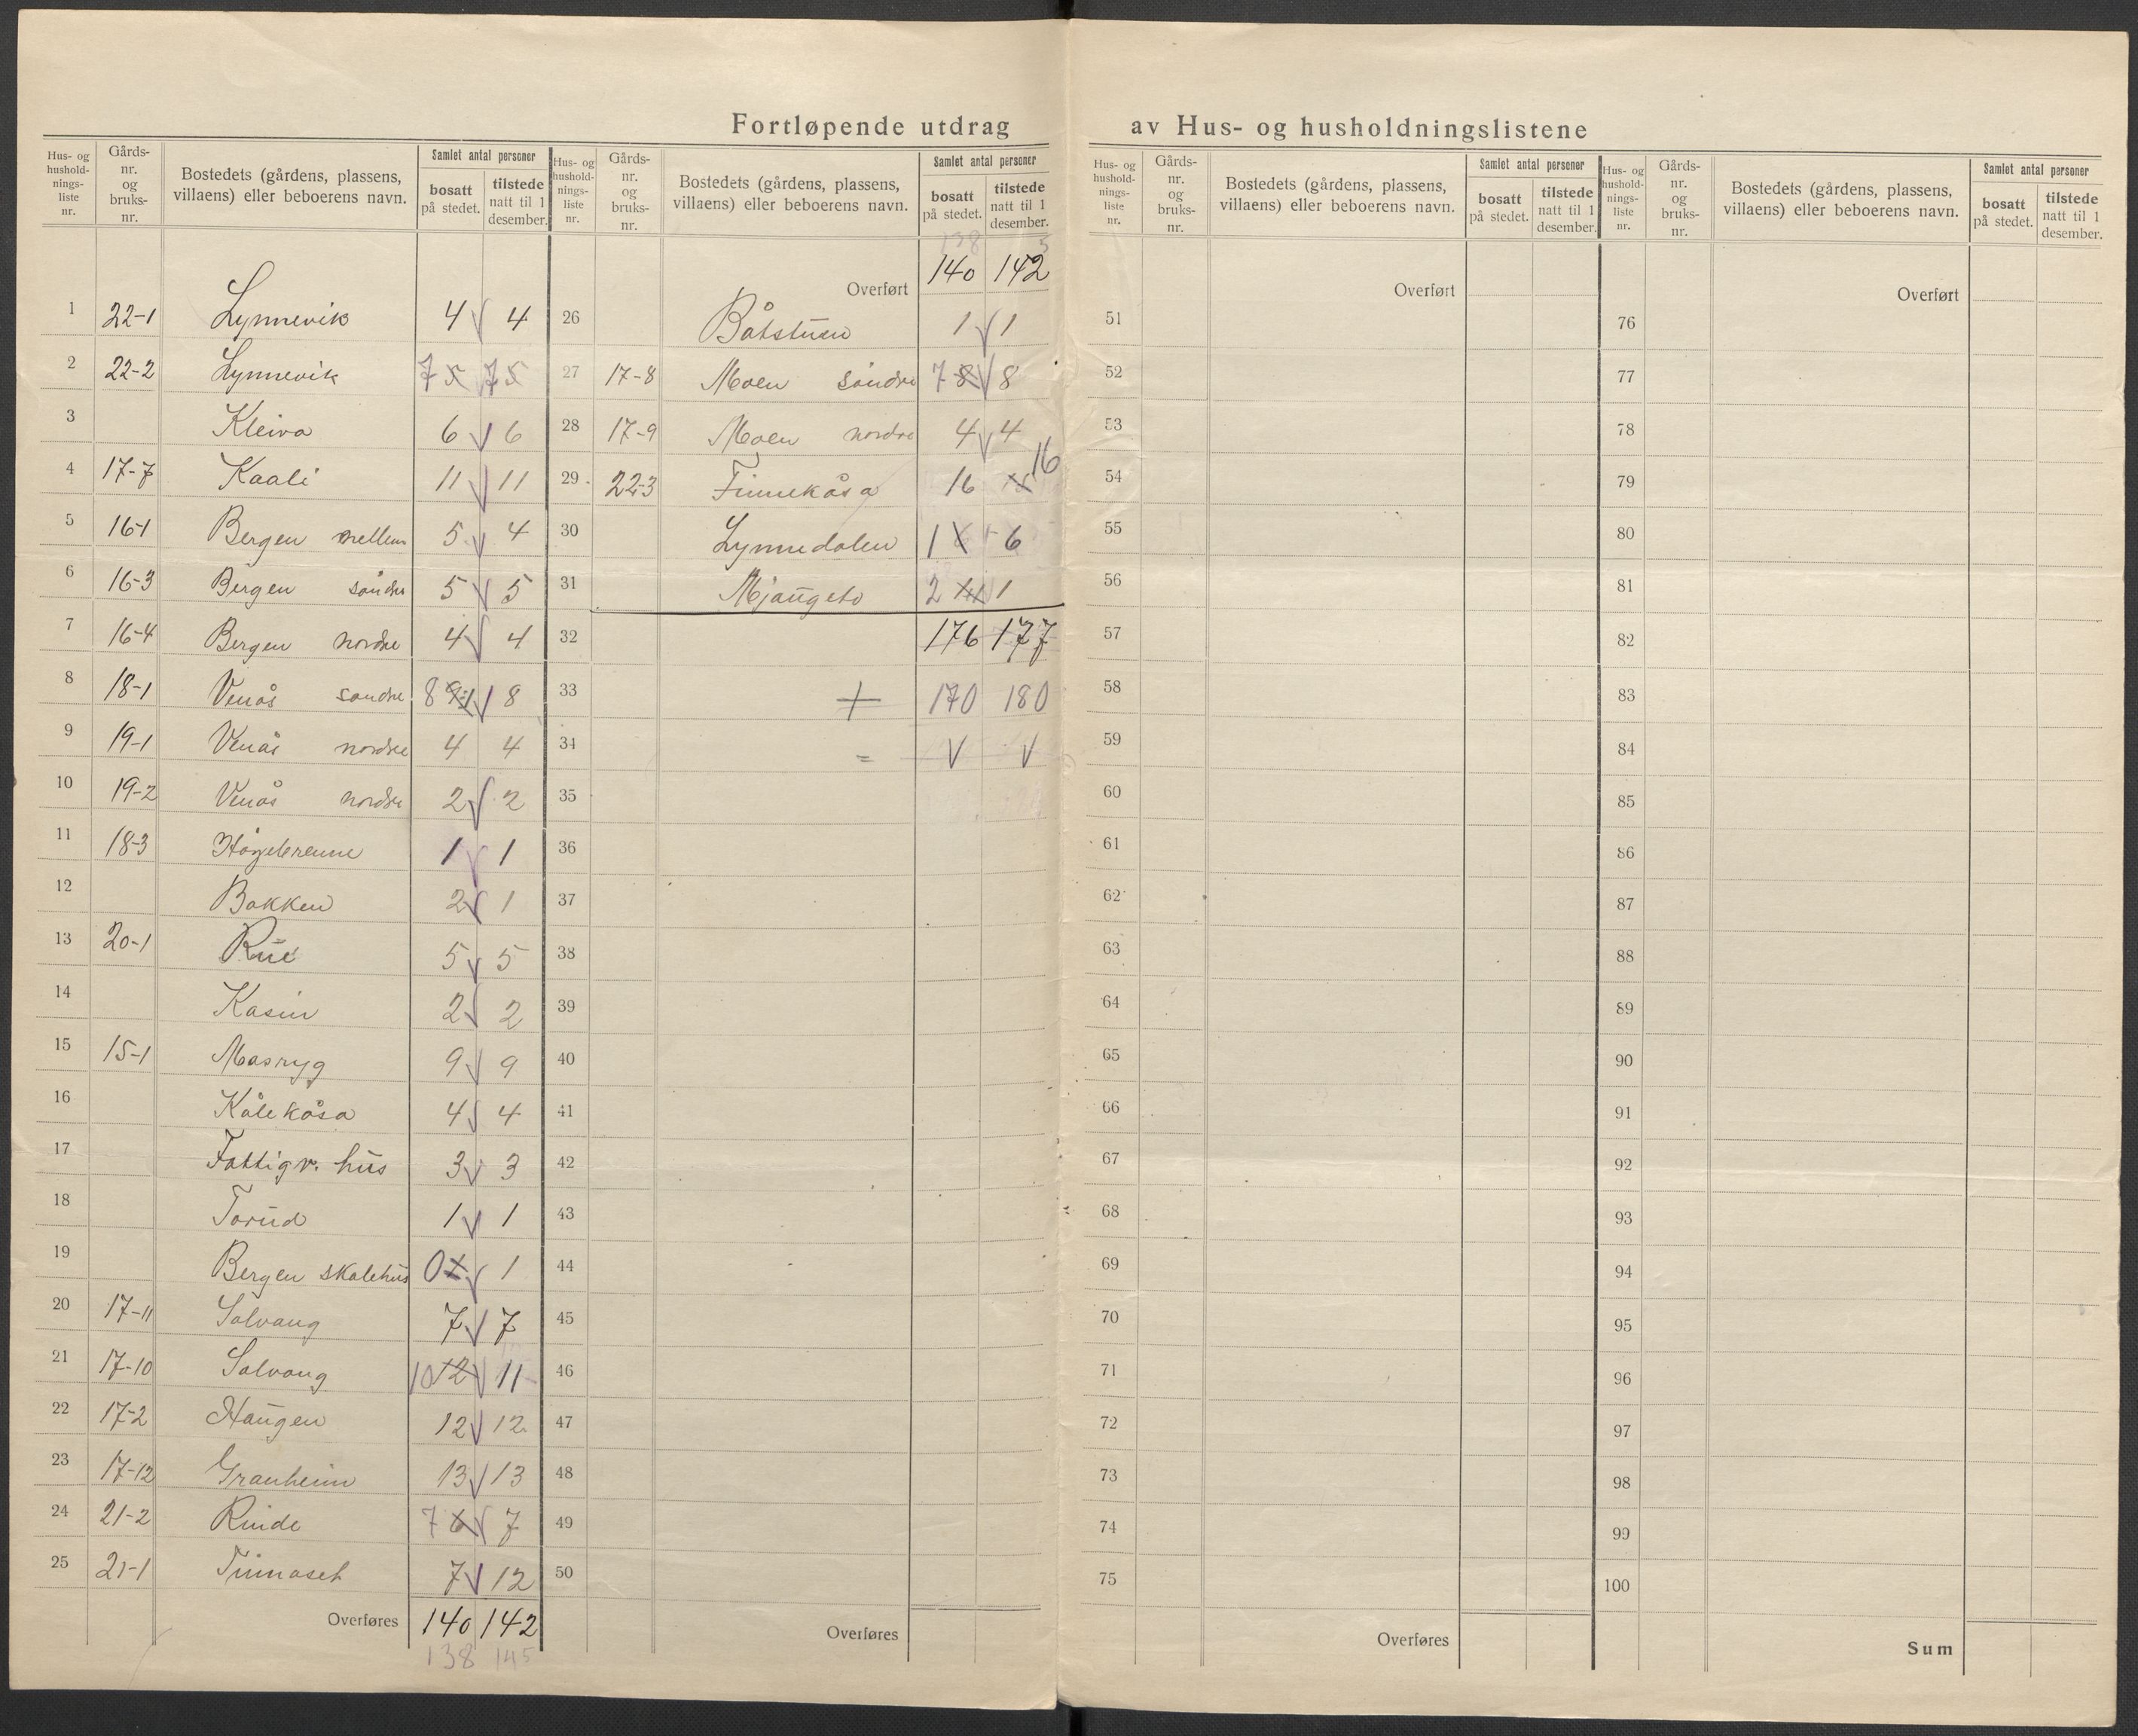 Fortløpende utdrag av Hus- og husholdningslistene
Hus- og husholdningsliste nr. | Gårdsnr. og bruksnr. | Bostedets (gårdens, plassens, villaens) eller beboerens navn. | Samlet antal personer | bosatt på stedet. | tilstede natt til 1 desember.
1 22-1 Lynnevik 4 4
2 22-2 Lynnevik 7 5 7 5
3 Kleiva 6 6
4 17-7 Kaali 11 11
5 16-1 Bergen mellem 5 4
6 16-3 Bergen söndre 5 5
7 16-4 Bergen nordre 4 4
8 18-1 Venås söndre 8 9 8
9 19-1 Venås nordre 4 4
10 19-2 Venås nordre 2 2
11 18-3 Högebrenne 1 1
12 Bakken 2 1
13 20-1 Rue 5 5
14 Kasin 2 2
15 15-1 Masryg 9 9
16 Kålekåsa 4 4
17 Fattigv. hus 3 3
18 Torud 1 1
19 Bergen skolehus 0 1
20 17-11 Solvang 7 7
21 17-10 Solvang 10 12 11
22 17-2 Haugen 12 12
23 17-12 Granheim 13 13
24 21-2 Rinde 7 6 7
25 21-1 7 12
Overføres 140 142
138 145
Hus- og husholdningsliste nr. | Gårdsnr. og bruksnr. | Bostedets (gårdens, plassens, villaens) eller beboerens navn. | Samlet antal personer | bosatt på stedet. | tilstede natt til 1 desember.
138 5
Overført 140 142
26 Båtstuen 1 1
27 17-8 Moen söndre 7 8 8
28 17-9 Moen nordre 4 4
29 22-3 Finnekåsa 16 16
30 Lynnedalen 1 6
31 Mjaugeto 2 1
32 176 177
33 + 170 180
34 =
35
36
37
38
39
40
41
42
43
44
45
46
47
48
49
50
Overføres
Hus- og husholdningsliste nr. | Gårdsnr. og bruksnr. | Bostedets (gårdens, plassens, villaens) eller beboerens navn. | Samlet antal personer | bosatt på stedet. | tilstede natt til 1 desember.
Overført
51
52
53
54
55
56
57
58
59
60
61
62
63
64
65
66
67
68
69
70
71
72
73
74
75
Overføres
Hus- og husholdningsliste nr. | Gårdsnr. og bruksnr. | Bostedets (gårdens, plassens, villaens) eller beboerens navn. | Samlet antal personer | bosatt på stedet. | tilstede natt til 1 desember.
Overført
76
77
78
79
80
81
82
83
84
85
86
87
88
89
90
91
92
93
94
95
96
97
98
99
100
Sum